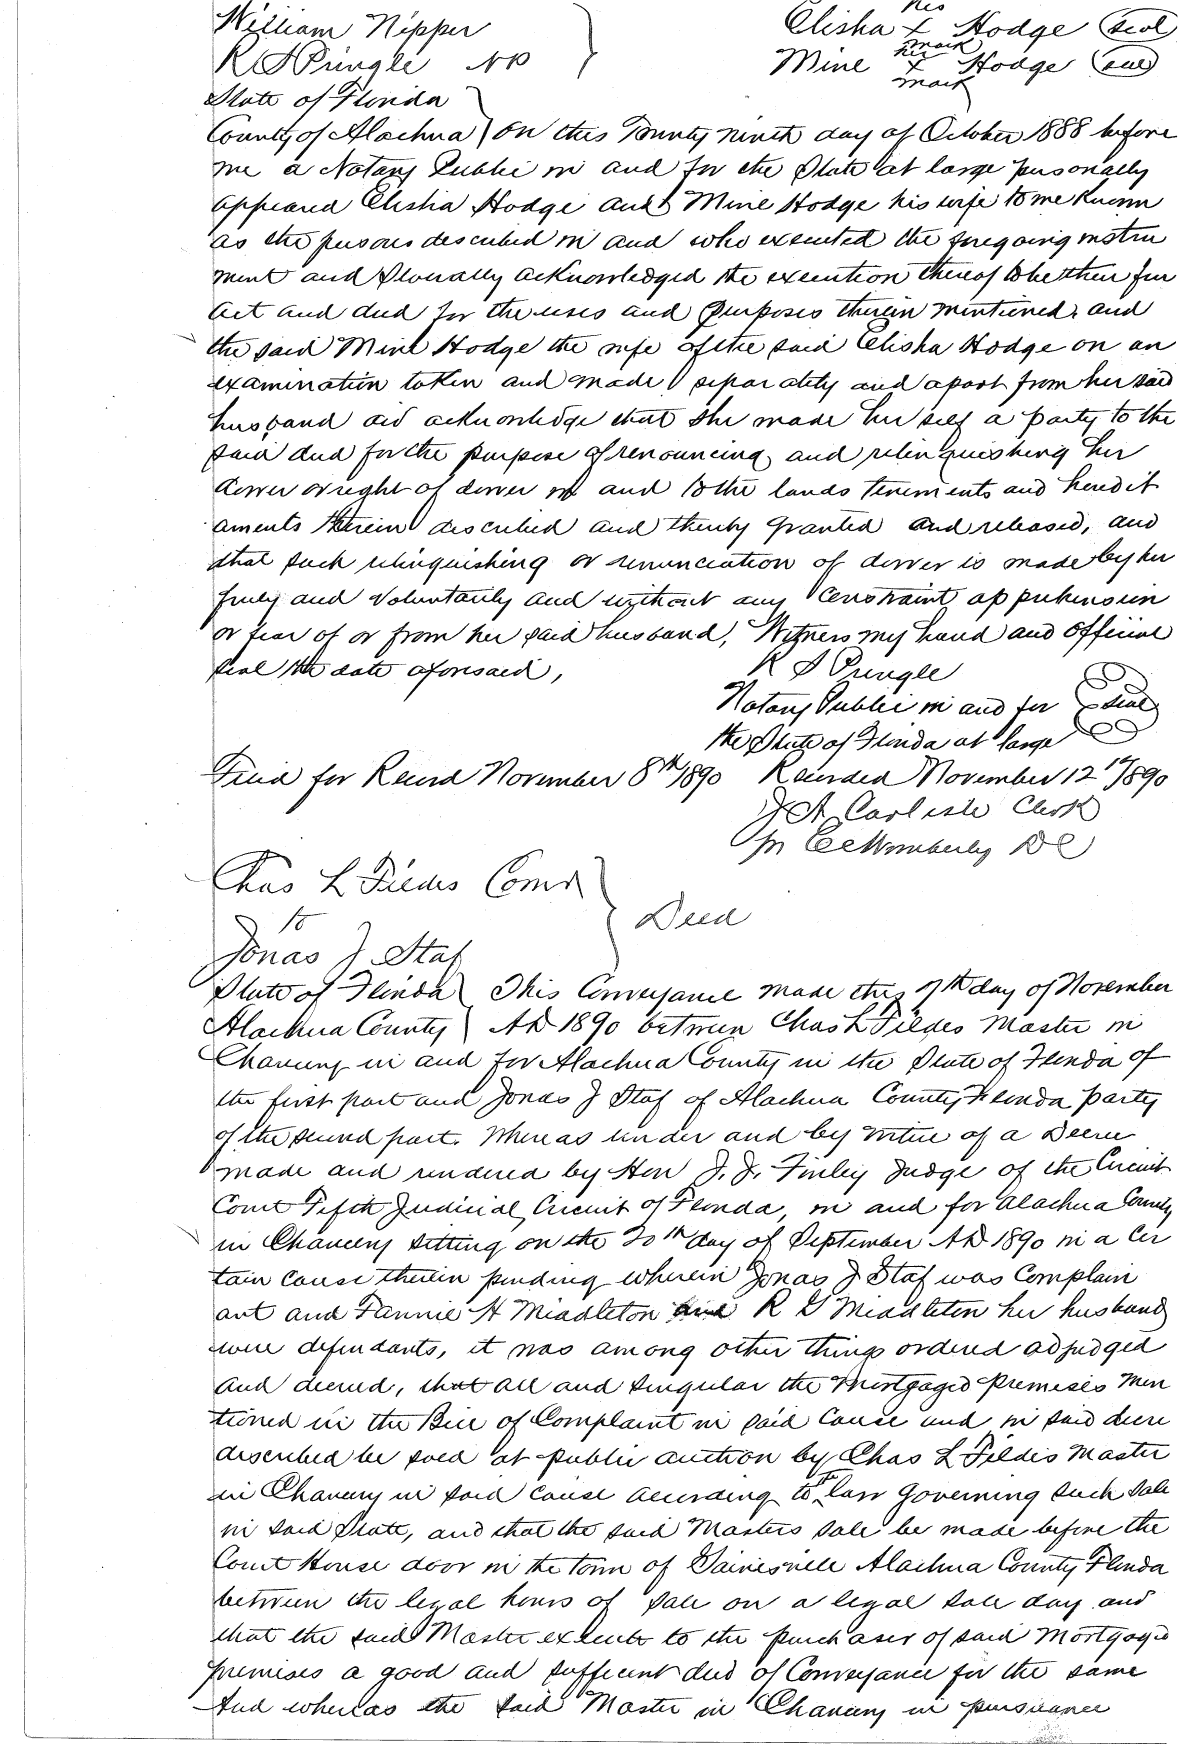 William Nipper } Elisha his x mark Hodge seal
R S Pringle NP Mine her x mark Hodge seal
State of Florida
County of Alachua } On this Twenty ninth day of October 1888 before
me a Notary Public in and for the State at large personally
appeared Elisha Hodge and Mine Hodge his wife to me known
as the persons described in and who executed the foregoing instru
ment and severally acknowledged the execution thereof to be their free
act and deed for the uses and purposes therein mentioned, and
the said Mine Hodge the wife of the said Elisha Hodge on an
examination taken and made separately and apart from her said
husband did acknowledge that she made her self a party to the
said deed for the purpose of renouncing and relinquishing her
dower or right of dower in and to the lands tenements and heredit
aments therein described and thereby granted and released, and
that such relinquishing or renunciation of dower is made by her
freely and voluntarily and without any constraint apprehension
or fear of or from her said husband, Witness my hand and official
seal the date aforesaid,
R S Pringle
Notary Public in and for seal
the State of Florida at large
Filed for Record November 8th 1890 Recorded November 12th 1890
J A Carlisle Clerk
pr Wimberly DC
Chas L Fildes Comr
to } Deed
Jonas J Staf
State of Florida } This Conveyance made this 7th day of November
Alachua County } AD 1890 between Chas L Fildes Master in
Chancery in and for Alachua County in the State of Florida of
the first part and Jonas J Staf of Alachua County Florida party
of the second part. Whereas under and by virtue of a Decree
made and rendered by Hon J. J. Finley Judge of the Circuit
Court Fifth Judicial Circuit of Florida, in and for Alachua County
in Chancery sitting on the 20th day of September AD 1890 in a cer
tain cause therein pending wherein Jonas J Staf was Complain
ant and Fannie H Middleton and R G Middleton her husband
were defendants, it was among other things ordered adjudged
and decreed, that all and singular the Mortgaged premises men
tioned in the Bill of Complaint in said cause and in said decree
described be sold at public auction by Chas L Fildes Master
in Chancery in said cause according to the law governing such sale
in said State, and that the said Masters sale be made before the
Court House door in the town of Gainesville Alachua County Florida
between the legal hours of sale on a legal sale day and
that the said Master execute to the purchaser of said Mortgaged
premises a good and sufficent deed of Conveyance for the same
And whereas the said Master in Chancery in pursuance